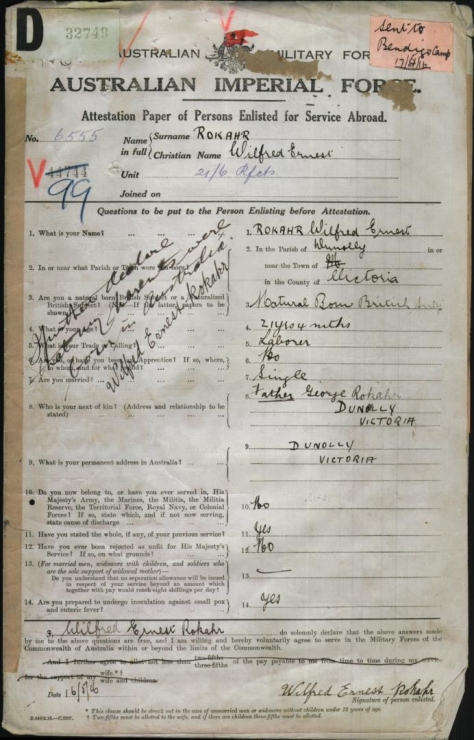 D
32749
Sent to
Bendigo Camp
17/5/16
AUSTRALIAN MILITARY FOR
AUSTRALIAN IMPERIAL FORCE.
Attestation Paper of Persons Enlisted for Service Abroad.
No. 6555
Name in full { Surname ROKAHR
Christian Name Wilfred Ernest
V 14744
99
Unit 21/6 Rfcts
Joined on
Questions to be put to the Person Enlisting before Attestation.
1. What is your Name? ... 1. ROKAHR Wilfred Ernest
2. In or near what Parish or Town were you born? 2. In the Parish of Dunolly in or
near the Town of
in the County of Victoria
3. Are you a natural born British Subject or a Naturalized British Subject? (N.B.—If the latter, papers to be shown) 3. Natural Born British
4. What is your Age? 4. 21 yrs 4 mths
5. What is your Trade or Calling? 5. Laborer
6. Are you, or have you been an Apprentice? If so, where, to whom, and for what period? 6. No
7. Are you Married? 7. Single
8. Who is your next of kin? (Address and relationship to be stated) 8. Father George Rokahr
DUNOLLY
VICTORIA
9. What is your permanent address in Australia? 9. DUNOLLY
VICTORIA
10. Do you now belong to, or have you ever served in, His Majesty's Army, the Marines, the Militia, the Militia Reserve, the Territorial Force, Royal Navy, or Colonial Forces? If so, state which, and if not now serving, state cause of discharge 10. No
11. Have you stated the whole, if any, of your previous service? 11. Yes
12. Have you ever been rejected as unfit for His Majesty's Service? If so, on what grounds? 12. No
13. (For married men, widowers with children, and soldiers who are the sole support of widowed mother—
Do you understand that no separation allowance will be issued in respect of your service beyond an amount which together with pay would reach eight shillings per day? 13. —
14. Are you prepared to undergo inoculation against small pox and enteric fever? 14. Yes
declare
parents were
born in Australia.
Wilfred Ernest Rokahr
I, Wilfred Ernest Rokahr do solemnly declare that the above answers made
by me to the above questions are true, and I am willing and hereby voluntarily agree to serve in the Military Forces of the
Commonwealth of Australia within or beyond the limits of the Commonwealth.
And I further agree to allot not less than two-fifths three-fifths of the pay payable to me from time to time during my service
for the support of my wife.* wife and children.
Date 16/5/16 Wilfred Ernest Rokahr
Signature of person enlisted.
* This clause should be struck out in the case of unmarried men or widowers without children under 18 years of age.
† Two fifths must be allotted to the wife, and if there are children three-fifths must be allotted.